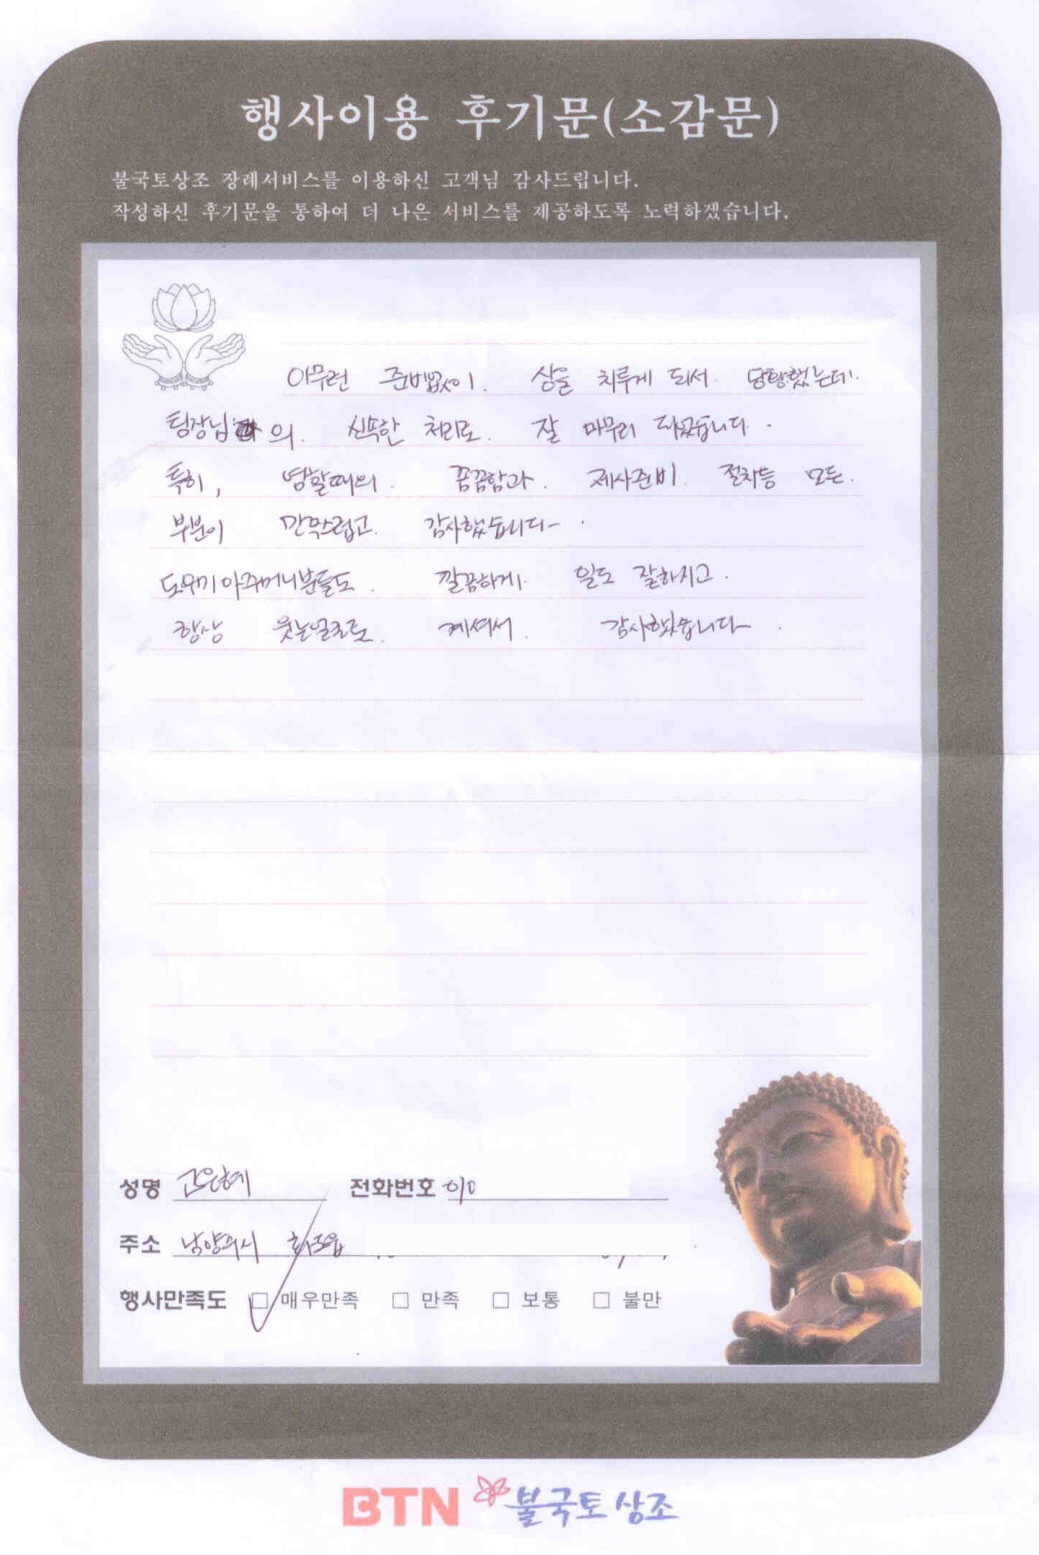 행사이용 후기문(소감문)
불국토상조 장례서비스를 이용하신 고객님 감사드립니다.
작성하신 후기문을 통하여 더 나은 서비스를 제공하도록 노력하겠습니다.
아무런 준비없이. 상을 치루게 되서. 당황했는데.
팀장님의. 신속한 처리로. 잘 마무리 되었습니다.
특히, 염할때의. 꼼꼼함과. 제사준비. 절차등 모든.
부분이 만족스럽고. 감사했습니다.
도우미아주머니분들도. 깔끔하게. 일도 잘하시고.
항상 웃는얼굴로. 계셔서. 감사했습니다.
성명 전화번호 010
주소 남양주시 화도읍
행사만족도 □ 매우만족 □ 만족 □ 보통 □ 불만
BTN 불국토 상조